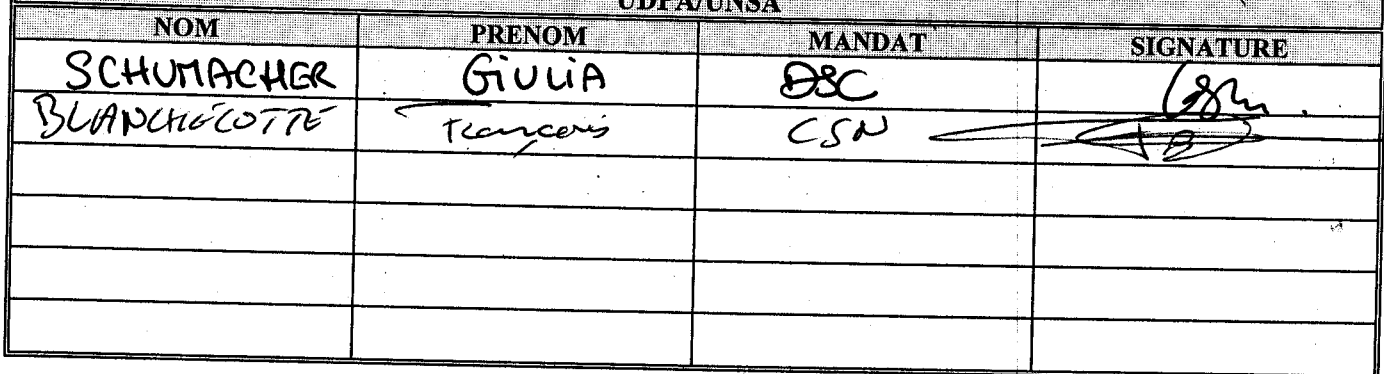 UDPA/UNSA
NOM PRENOM MANDAT SIGNATURE
SCHUMACHER GIULIA DSC
BLANCHÉCOTTE François CSN